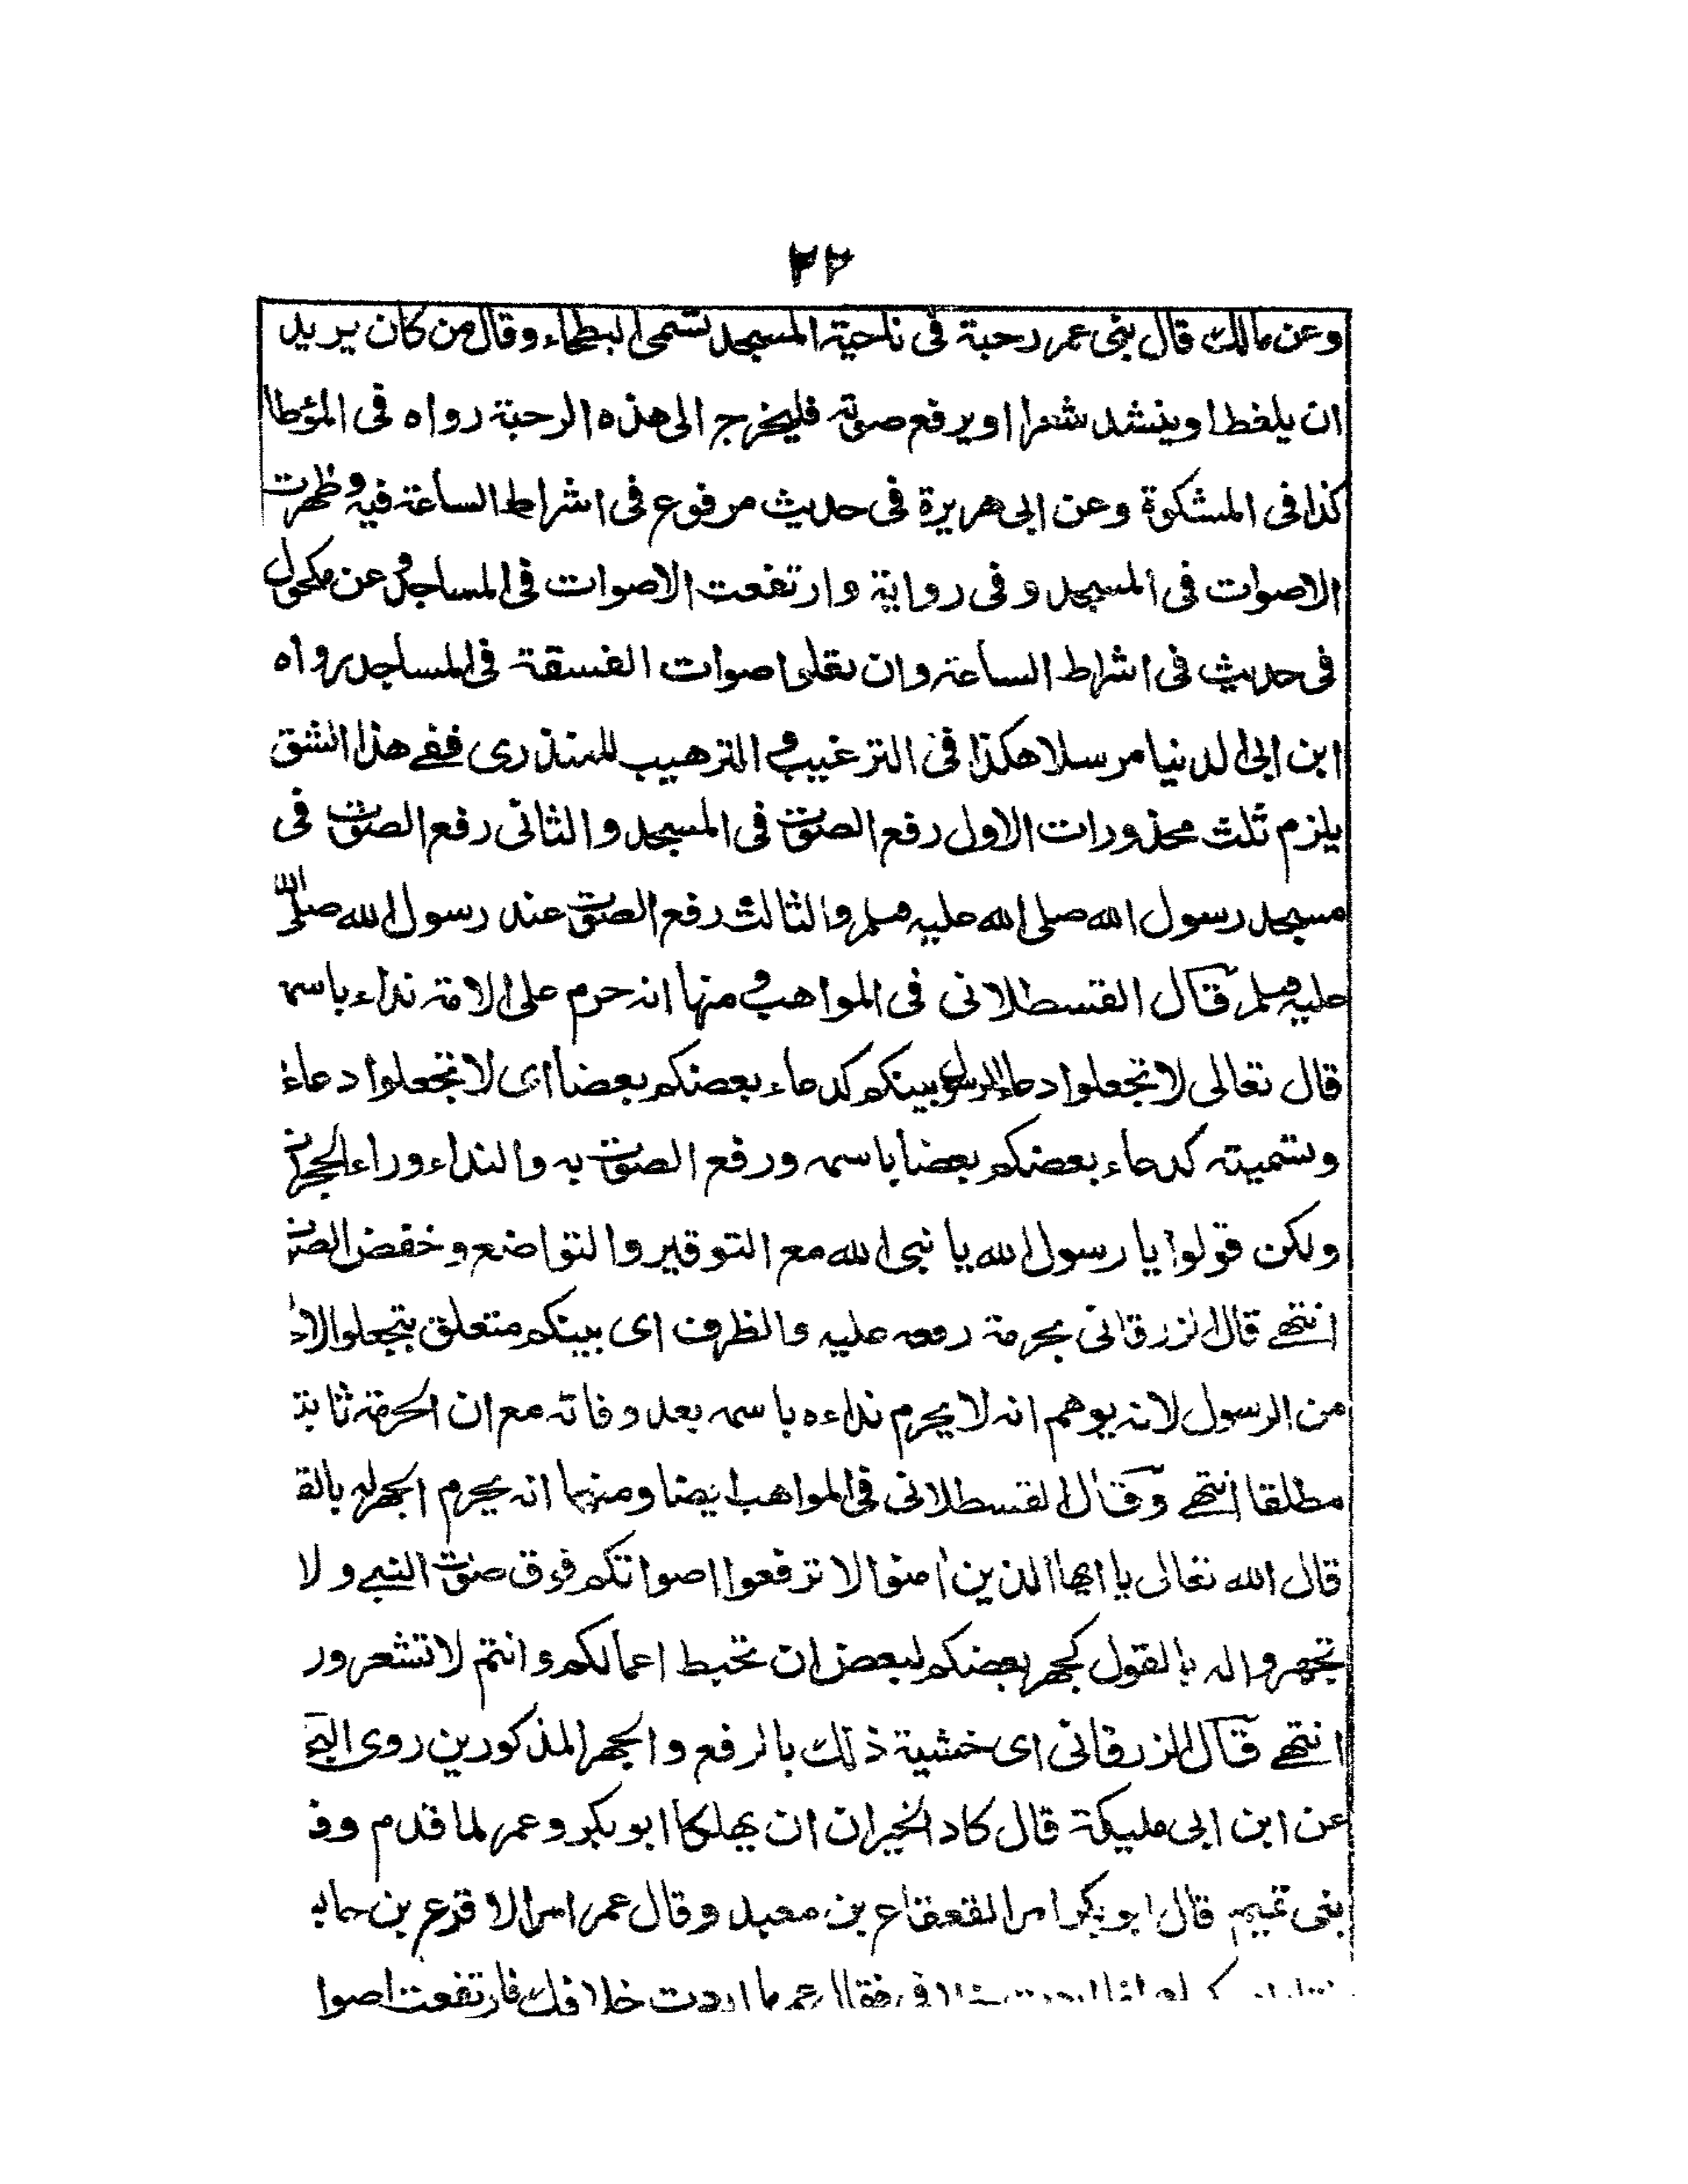 ٢٢
وعن مالك قال بنى عمر رحبة فى ناحية المسجد تسمى البطحاء وقال من كان يريد
ان يلغط او ينشد شعرا او يرفع صوته فليخرج الى هذه الرحبة رواه فى المؤطا
كذا فى المشكوة وعن ابى هريرة فى حديث مرفوع فى اشراط الساعة فيه وظهرت
الاصوات فى المسجد و فى رواية وارتفعت الاصوات فى المساجد وعن مكحول
فى حديث فى اشراط الساعة وان تعلى اصوات الفسقة فى المساجد رواه
ابن ابى الدنيا مرسلا هكذا فى الترغيب و الترهيب للمنذرى ففے هذا الشق
يلزم ثلث محذورات الاول رفع الصوت فى المسجد و الثانى رفع الصوت فى
مسجد رسول الله صلى الله عليه وسلم والثالث رفع الصوت عند رسول الله صلى الله
عليه وسلم قال القسطلانى فى المواهب و منها انه حرم على الامة نداءه باسمه
قال تعالى لا تجعلوا دعاء الرسول بينكم كدعاء بعضكم بعضا اى لا تجعلوا دعاءه
وتسميته كدعاء بعضكم بعضا باسمه ورفع الصوت به والنداء وراء الحجرات
ولكن قولوا يا رسول الله يا نبى الله مع التوقير والتواضع وخفض الصوت
انتهے قال الزرقانى بحرمة رفعه عليه والظرف اى بينكم متعلق بتجعلوا لا
من الرسول لانه يوهم انه لا يحرم نداءه باسمه بعد وفاته مع ان الحرمة ثابتة
مطلقا انتهے وقال القسطلانى فى المواهب ايضا ومنها انه يحرم الجهر له بالق
قال الله تعالى يا ايها الذين امنوا لا ترفعوا اصواتكم فوق صوت النبے و لا
تجهروا له بالقول كجهر بعضكم لبعض ان تحبط اعمالكم و انتم لا تشعرور
انتهے قال الزرقانى اى خشية ذلك بالرفع و الجهر المذكورين روى البخ
عن ابن ابى مليكة قال كاد الخيران ان يهلكا ابو بكر وعمر لما قدم وف
بنى تميم قال ابو بكر امر القعقاع بن معبد وقال عمر امر الاقرع بن حابـ
فقال عمر ما اردت خلافك فارتفعت اصوا